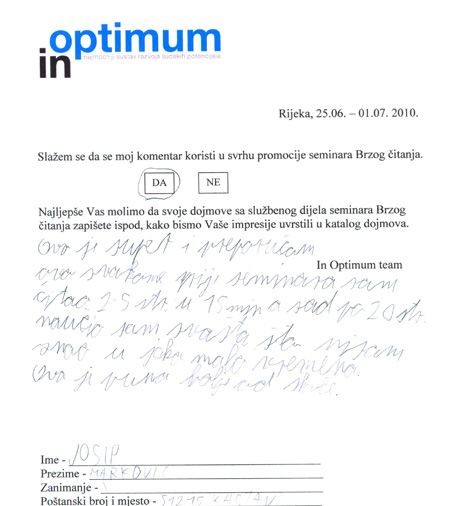 in optimum
najmoćniji sustav razvoja ljudskih potencijala
Rijeka, 25.06. – 01.07. 2010.
Slažem se da se moj komentar koristi u svrhu promocije seminara Brzog čitanja.
DA NE
Najljepše Vas molimo da svoje dojmove sa službenog dijela seminara Brzog
čitanja zapišete ispod, kako bismo Vaše impresije uvrstili u katalog dojmova.
Ovo je super i preporučam
In Optimum team
ovo svakome prije seminara sam
čitao 2.5 str. u 15 min a sad po 20 str.
naučio sam svašta šta nisam
znao u jako malo vremena.
Ovo je puno bolje od škole.
Ime - JOSIP
Prezime - MARKOVIĆ
Zanimanje -
Poštanski broj i mjesto - 51215 KASTAV